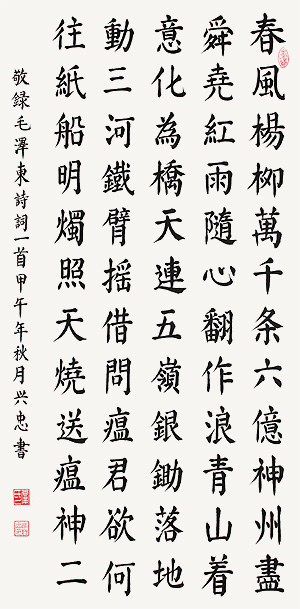 春風楊柳萬千条六億神州盡
舜堯紅雨隨心翻作浪青山着
意化為橋天連五嶺銀鋤落地
動三河鐵臂摇借問瘟君欲何
往紙船明燭照天燒送瘟神二
敬録毛澤東詩詞一首甲午年秋月兴忠書